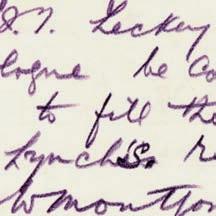 D.T. Leckey
logue be co
to fill the
Lynch's. re
Wmontgom